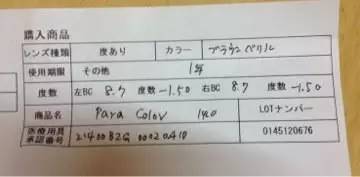 購入商品
レンズ種類 度あり カラー ブラウンベリル
使用期限 その他 1年
度数 左BC 8.7 度数 -1.50 右BC 8.7 度数 -1.50
商品名 Para Color 1yo LOTナンバー
医療用具承認番号 21400BZG00020A10 0145120676